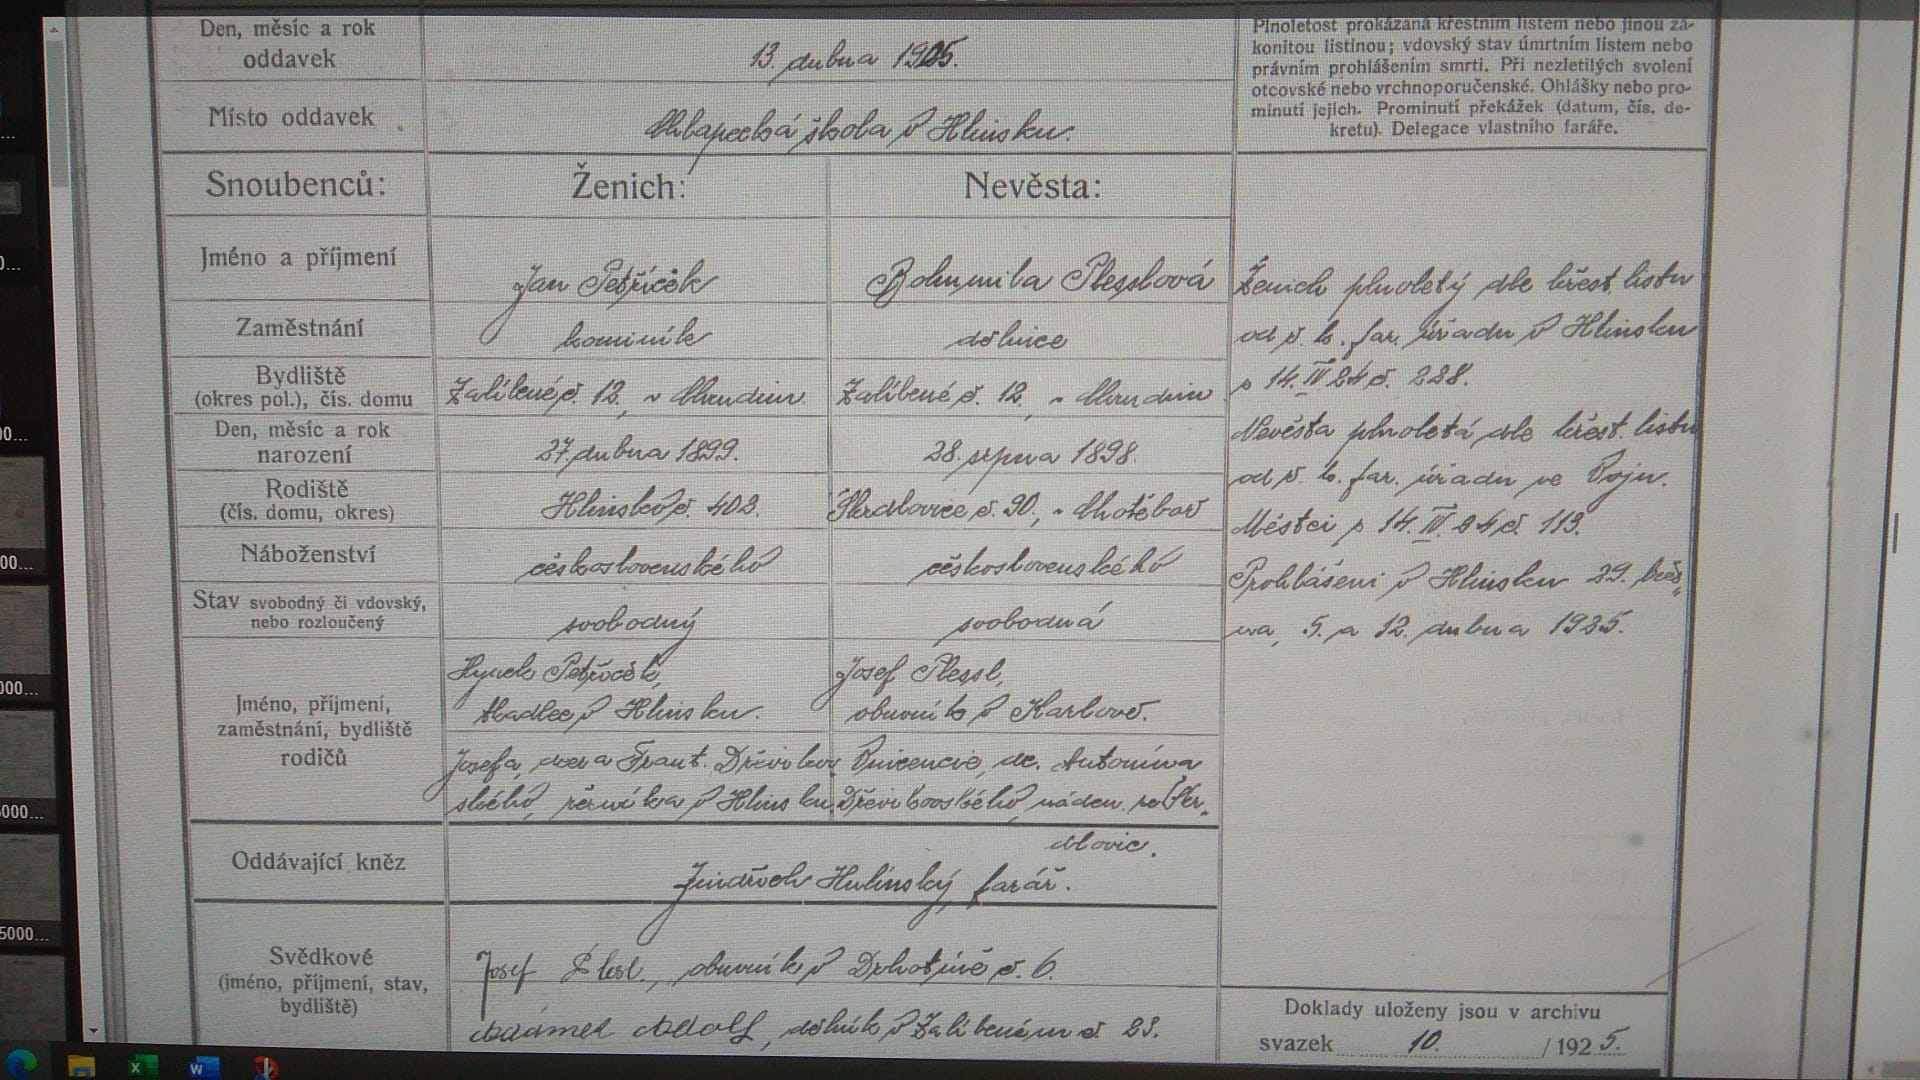 Den, měsíc a rok
oddavek
13. dubna 1925.
Plnoletost prokázaná křestním listem nebo jinou zá-
konitou listinou; vdovský stav úmrtním listem nebo
právním prohlášením smrti. Při nezletilých svolení
otcovské nebo vrchnoporučenské. Ohlášky nebo pro-
minutí jejich. Prominutí překážek (datum, čís. de-
kretu). Delegace vlastního faráře.
Místo oddavek
Chlapecká škola v Hlinsku.
Snoubenců:
Ženich:
Nevěsta:
Jméno a příjmení
Jan Petříček
Bohumila Plesslová
Zaměstnání
kominík
dělnice
Bydliště
(okres pol.), čís. domu
Zalíbené č. 12, Chrudim.
Zalíbené č. 12, Chrudim
Den, měsíc a rok
narození
27. dubna 1899.
28. srpna 1898.
Rodiště
(čís. domu, okres)
Hlinsko č. 403.
Škrdlovice č. 90, Chotěboř
Náboženství
československého
československého
Stav svobodný či vdovský,
nebo rozloučený
svobodný
svobodná
Jméno, příjmení,
zaměstnání, bydliště
rodičů
Hynek Petříček,
tkadlec v Hlinsku.
Josefa, dcera Frant. Dřevikov
ského, v Hlinsku
Josef Plessl,
obuvník v Karlově.
Vincencie, dc. Antonína
Dřevikovského, náden. ze Škr
dlovic.
Ženich plnoletý dle křest. listu
od ř. k. far. úřadu v Hlinsku
z 14. IV 24 č. 228.
Nevěsta plnoletá dle křest. listu
od ř. k. far. úřadu ve Vojn.
Městci z 14. IV. 24 č. 113.
Prohlášeni v Hlinsku 29. břez
na, 5. a 12. dubna 1925.
Oddávající kněz
Jindřich Hulínský, farář.
Svědkové
(jméno, příjmení, stav,
bydliště)
Josef Plesl, obuvník v č. 6.
Adámek Adolf, dělník v Zalíbeném č. 23.
Doklady uloženy jsou v archivu
svazek 10. / 192 5.